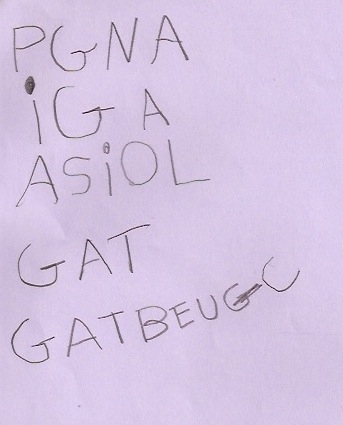 PGNA
iGA
ASiOL
GAT
GATBEUGC